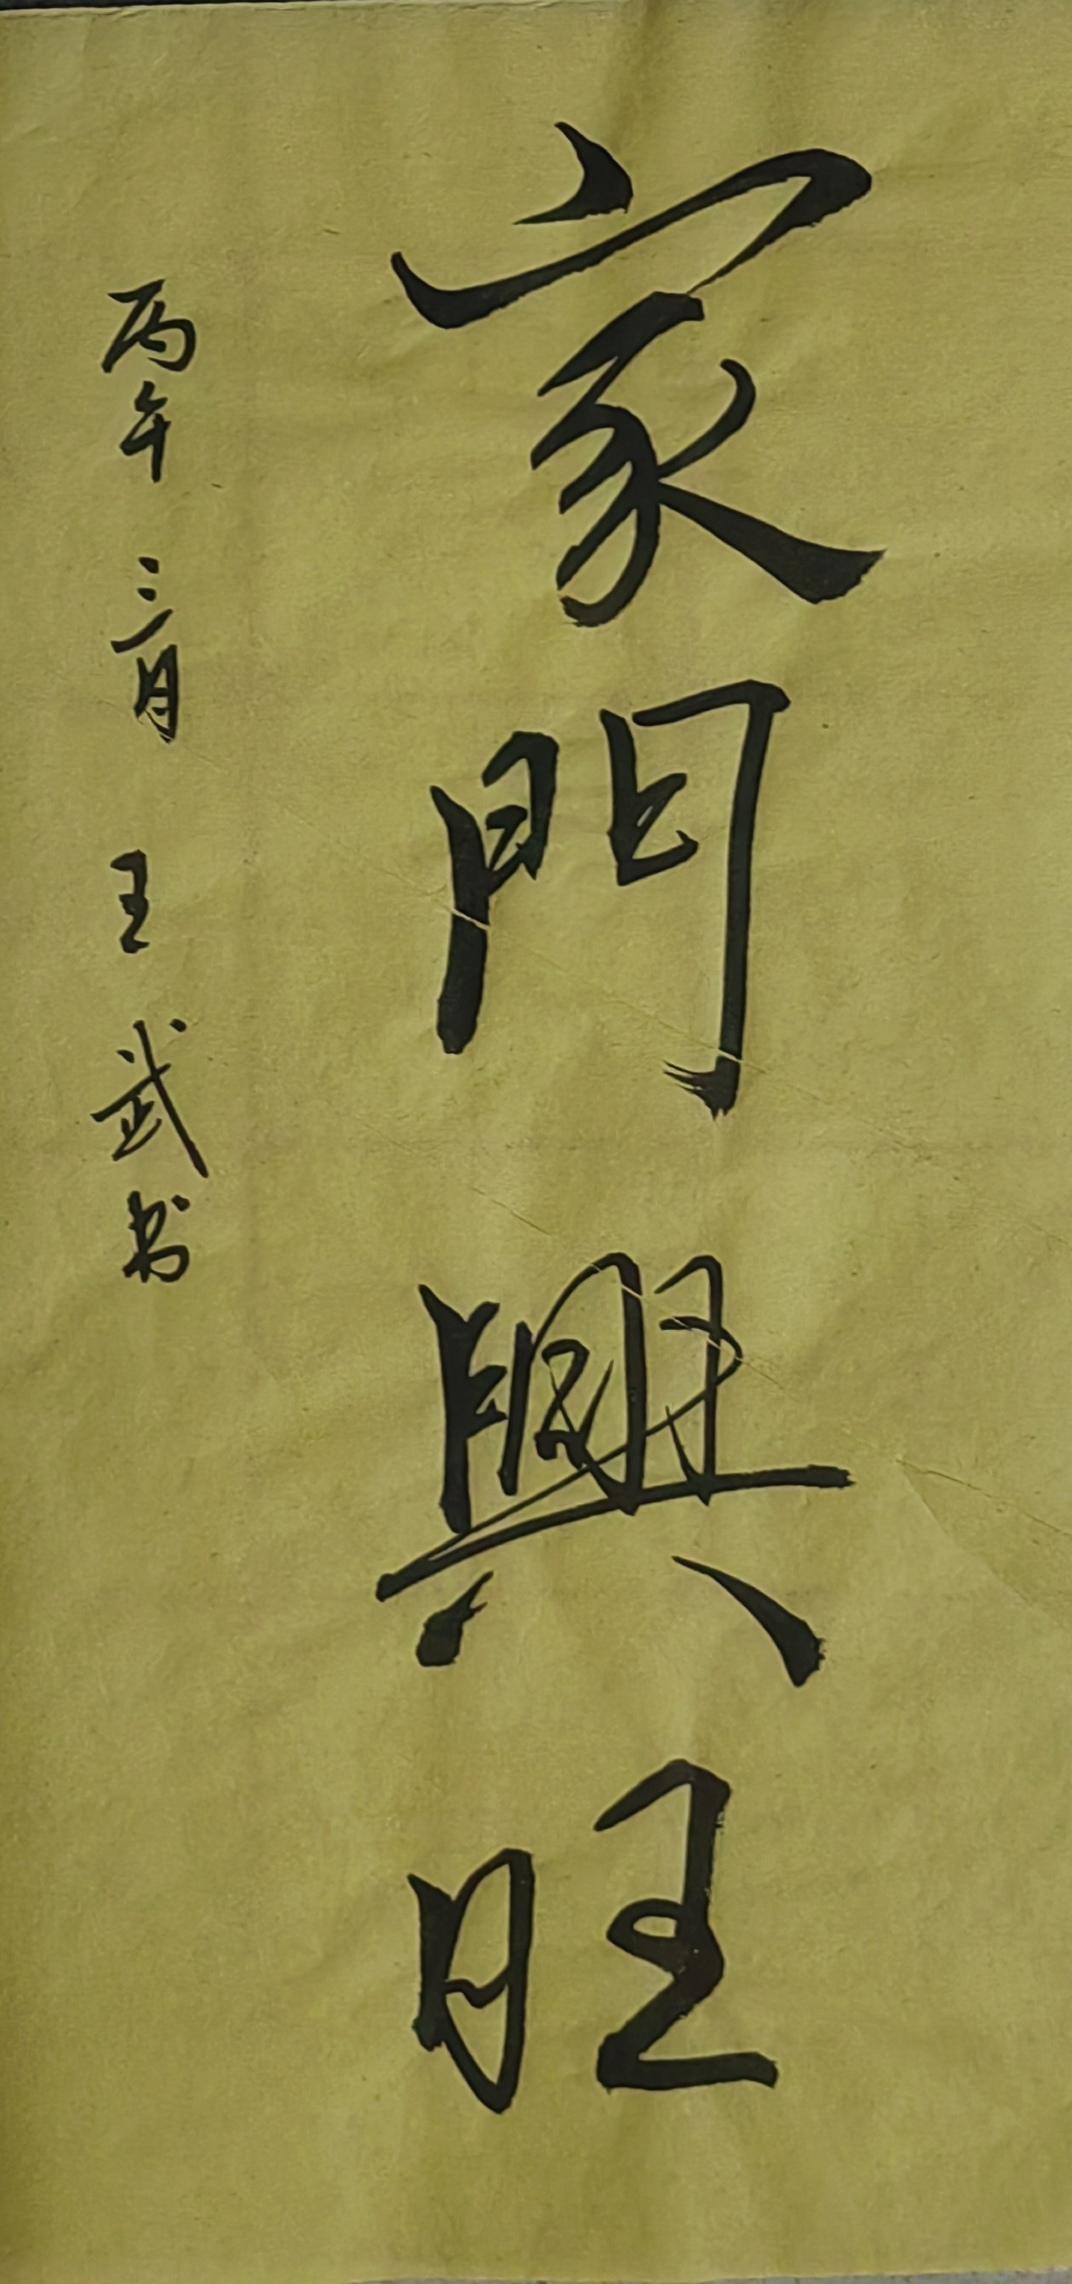 家門興旺
丙午三月 王武书